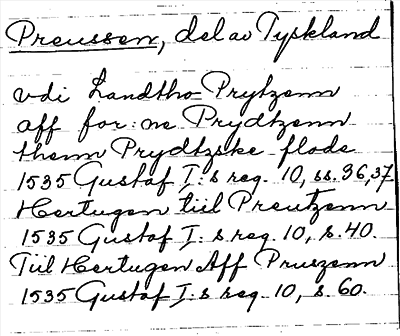 Preussen, del av Tyskland
vdi Landtho Prytzenn
aff for:ne Prydtzenn
themn Prydtzske flode
1535 Gustaf I:s reg. 10, ss. 36, 37.
Hertugen tiil Preutzenn
1535 Gustaf I:s reg. 10, s. 40.
Tiil Hertugen Aff Pruszenn
1535 Gustaf I:s reg. 10, s. 60.